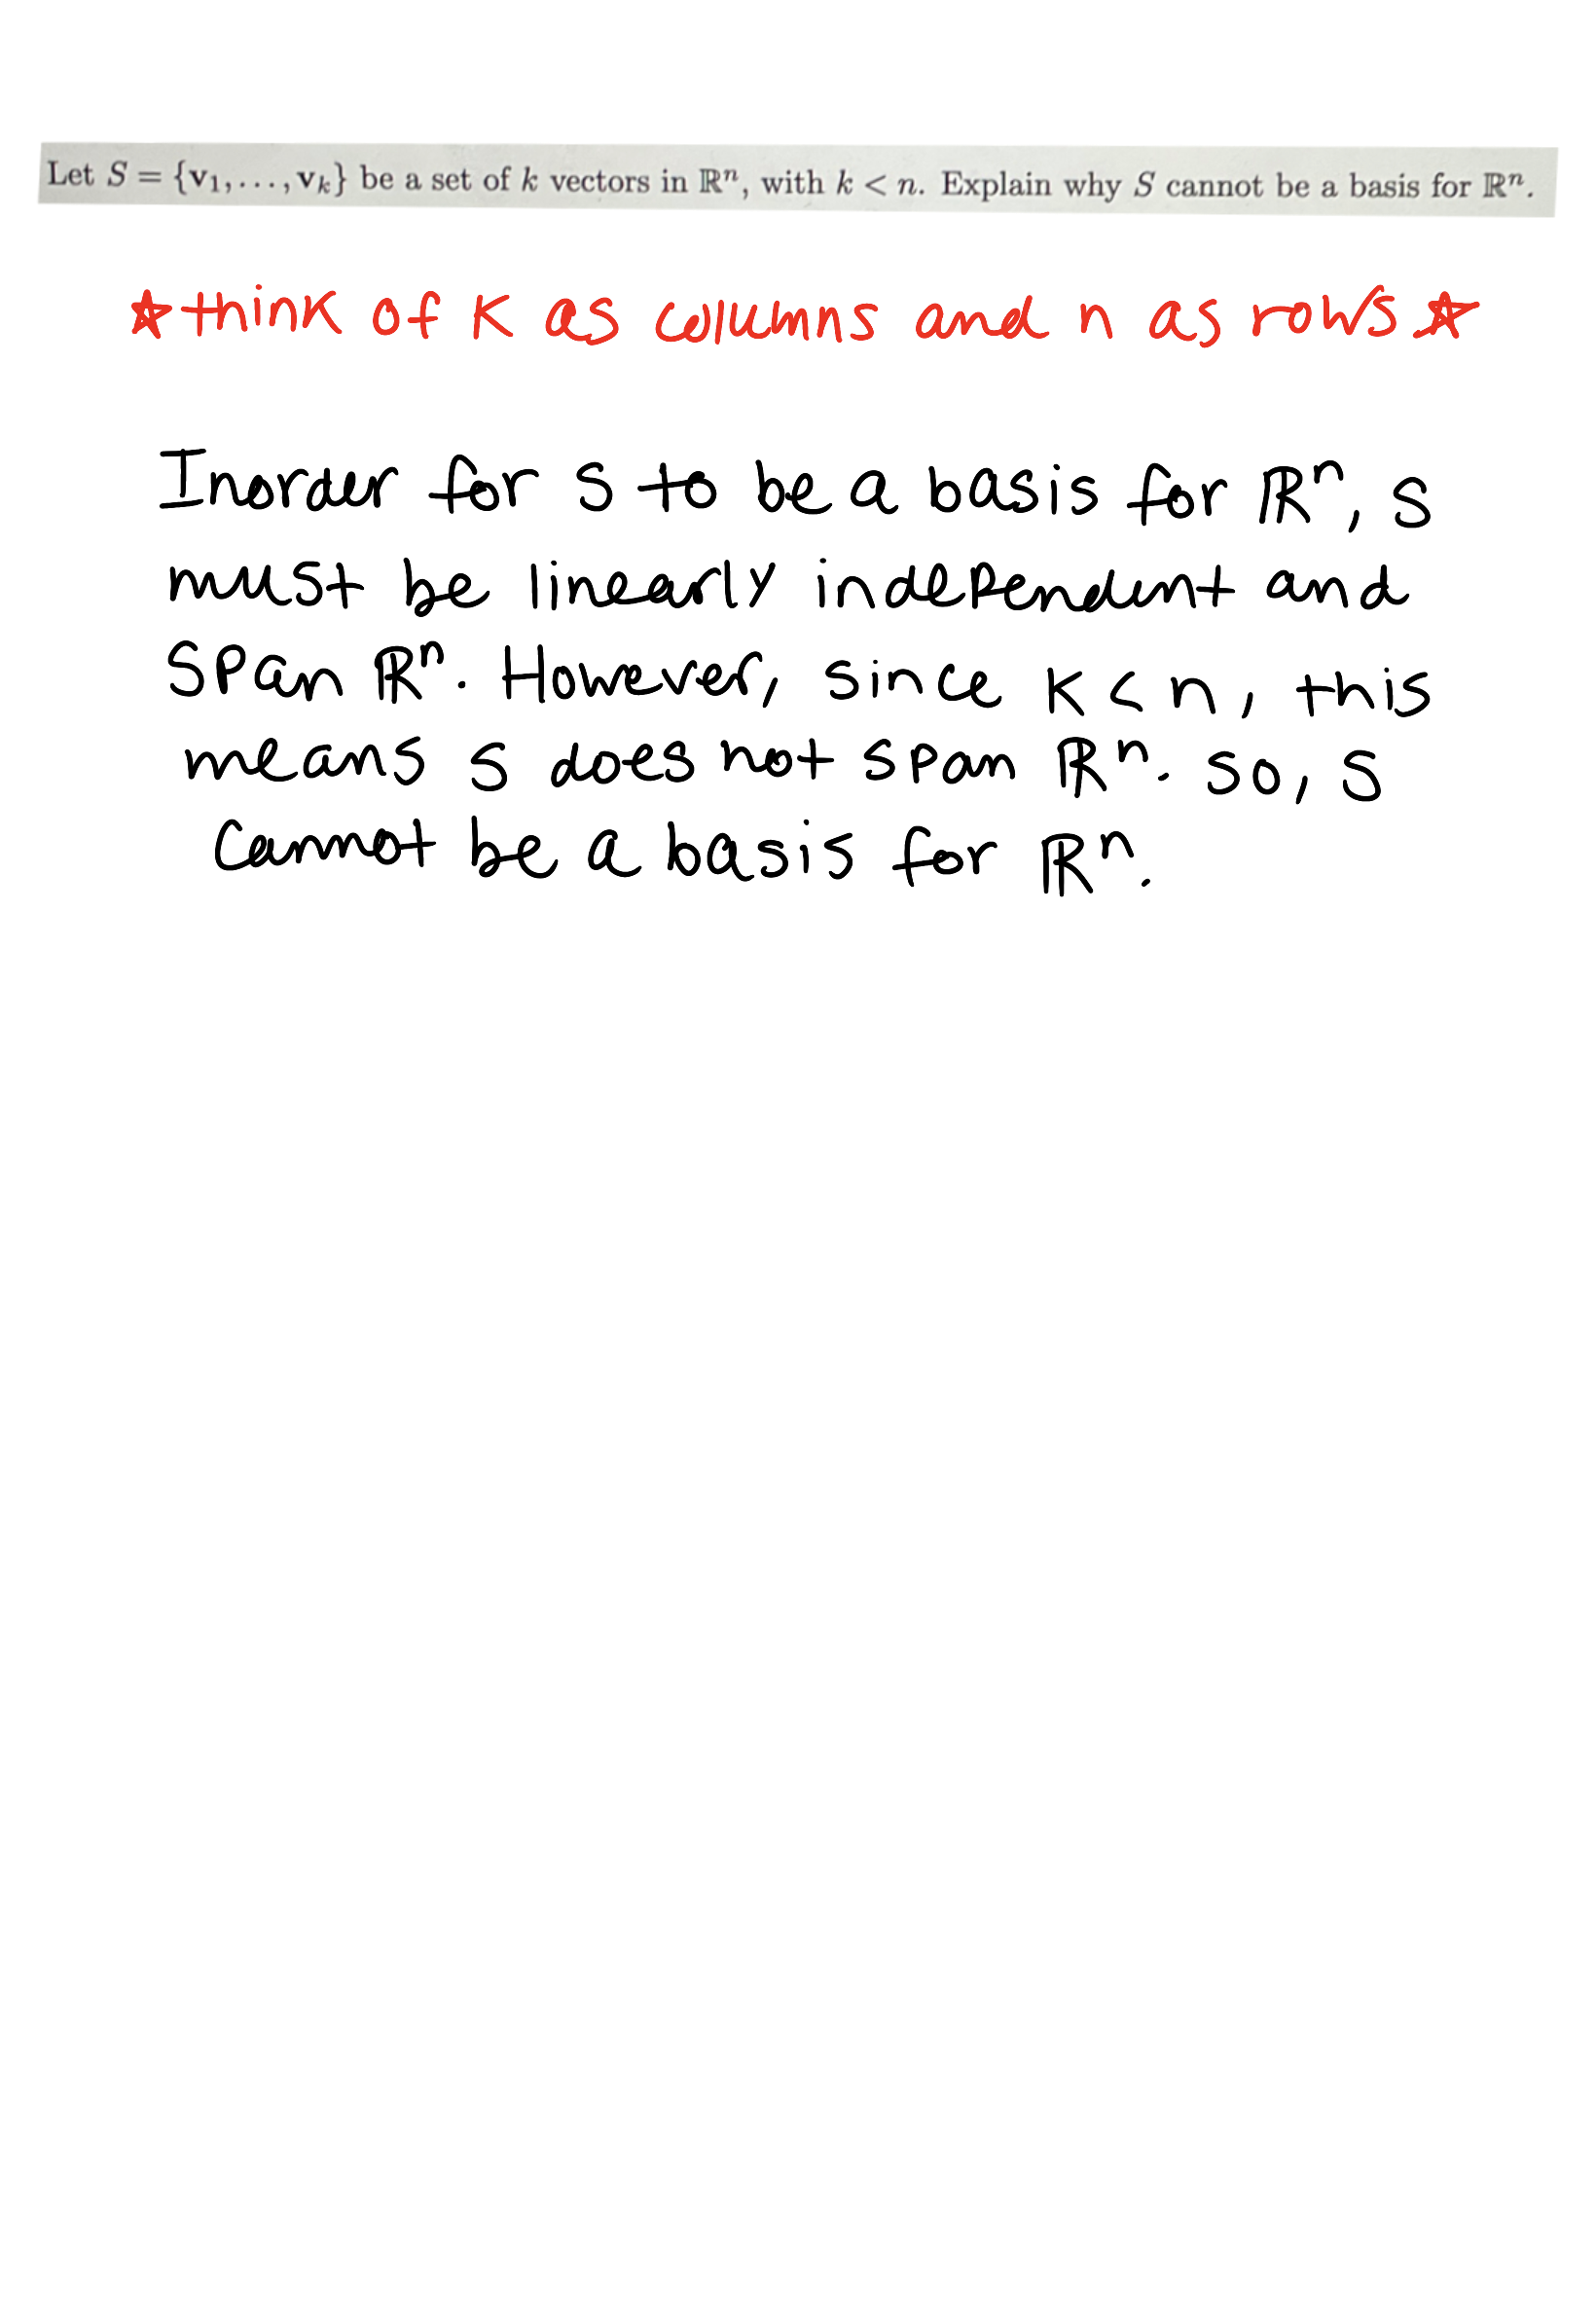 Let S = {v₁, . . . , vₖ} be a set of k vectors in ℝⁿ, with k < n. Explain why S cannot be a basis for ℝⁿ.
☆think of K as columns and n as rows☆
Inorder for S to be a basis for ℝⁿ, S
must be linearly independent and
span ℝⁿ. However, since K < n, this
means S does not span ℝⁿ. So, S
cannot be a basis for ℝⁿ.